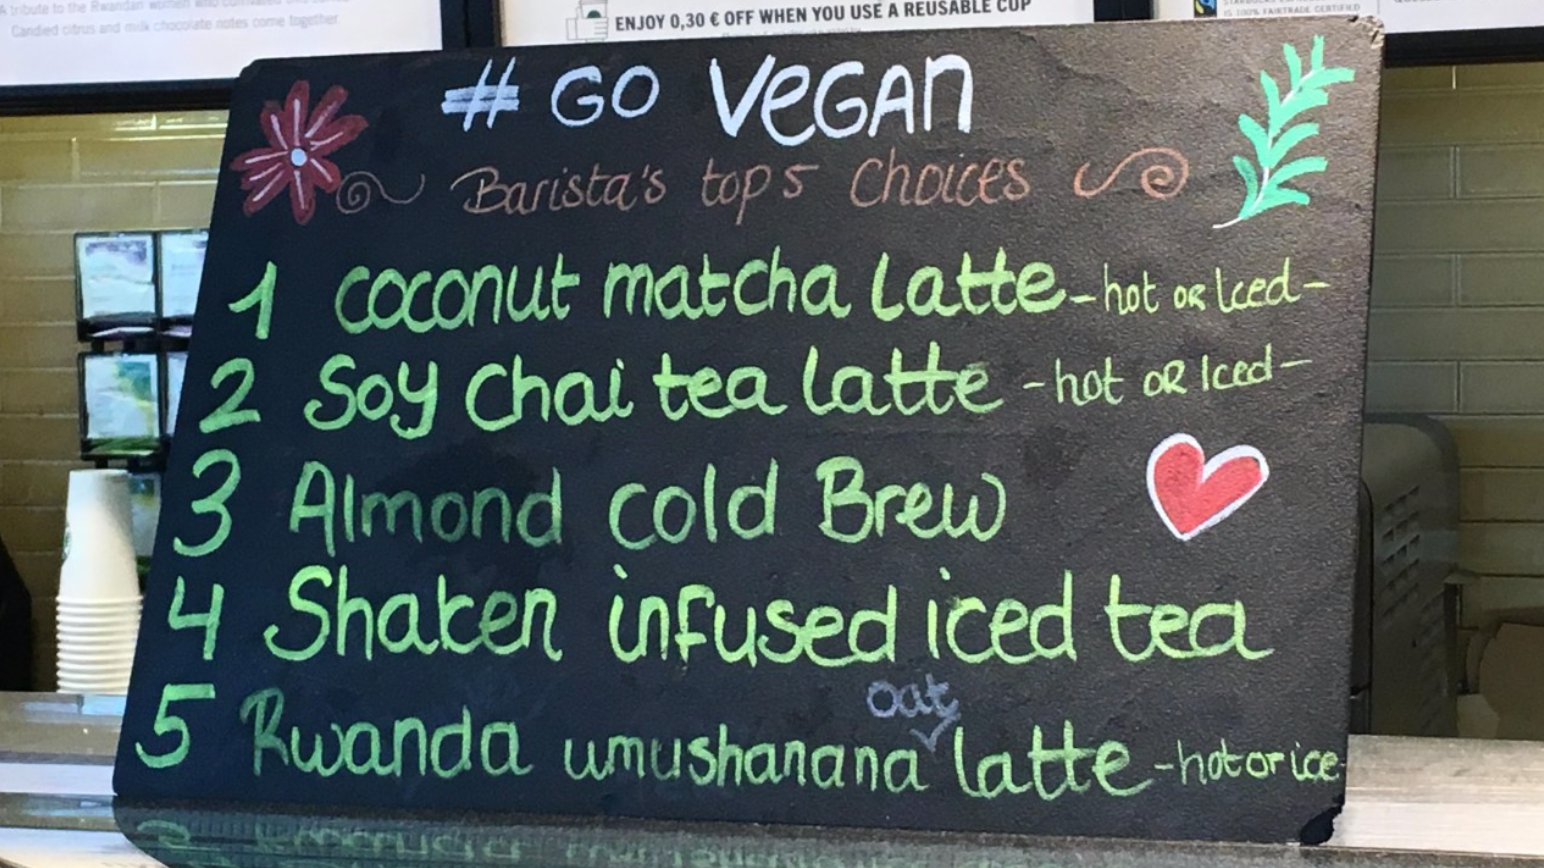 A tribute to the Rwandan women who cultivated this
Candied citrus and milk chocolate notes come together.
ENJOY 0,30 € OFF WHEN YOU USE A REUSABLE CUP
IS 100% FAIRTRADE CERTIFIED
# GO VeGAN
Barista's top 5 Choices
1 coconut matcha latte - hot OR Iced -
2 Soy Chai tea latte - hot OR Iced -
3 Almond cold Brew
4 Shaken infused iced tea
oat
5 Rwanda umushanana latte - hot or ice